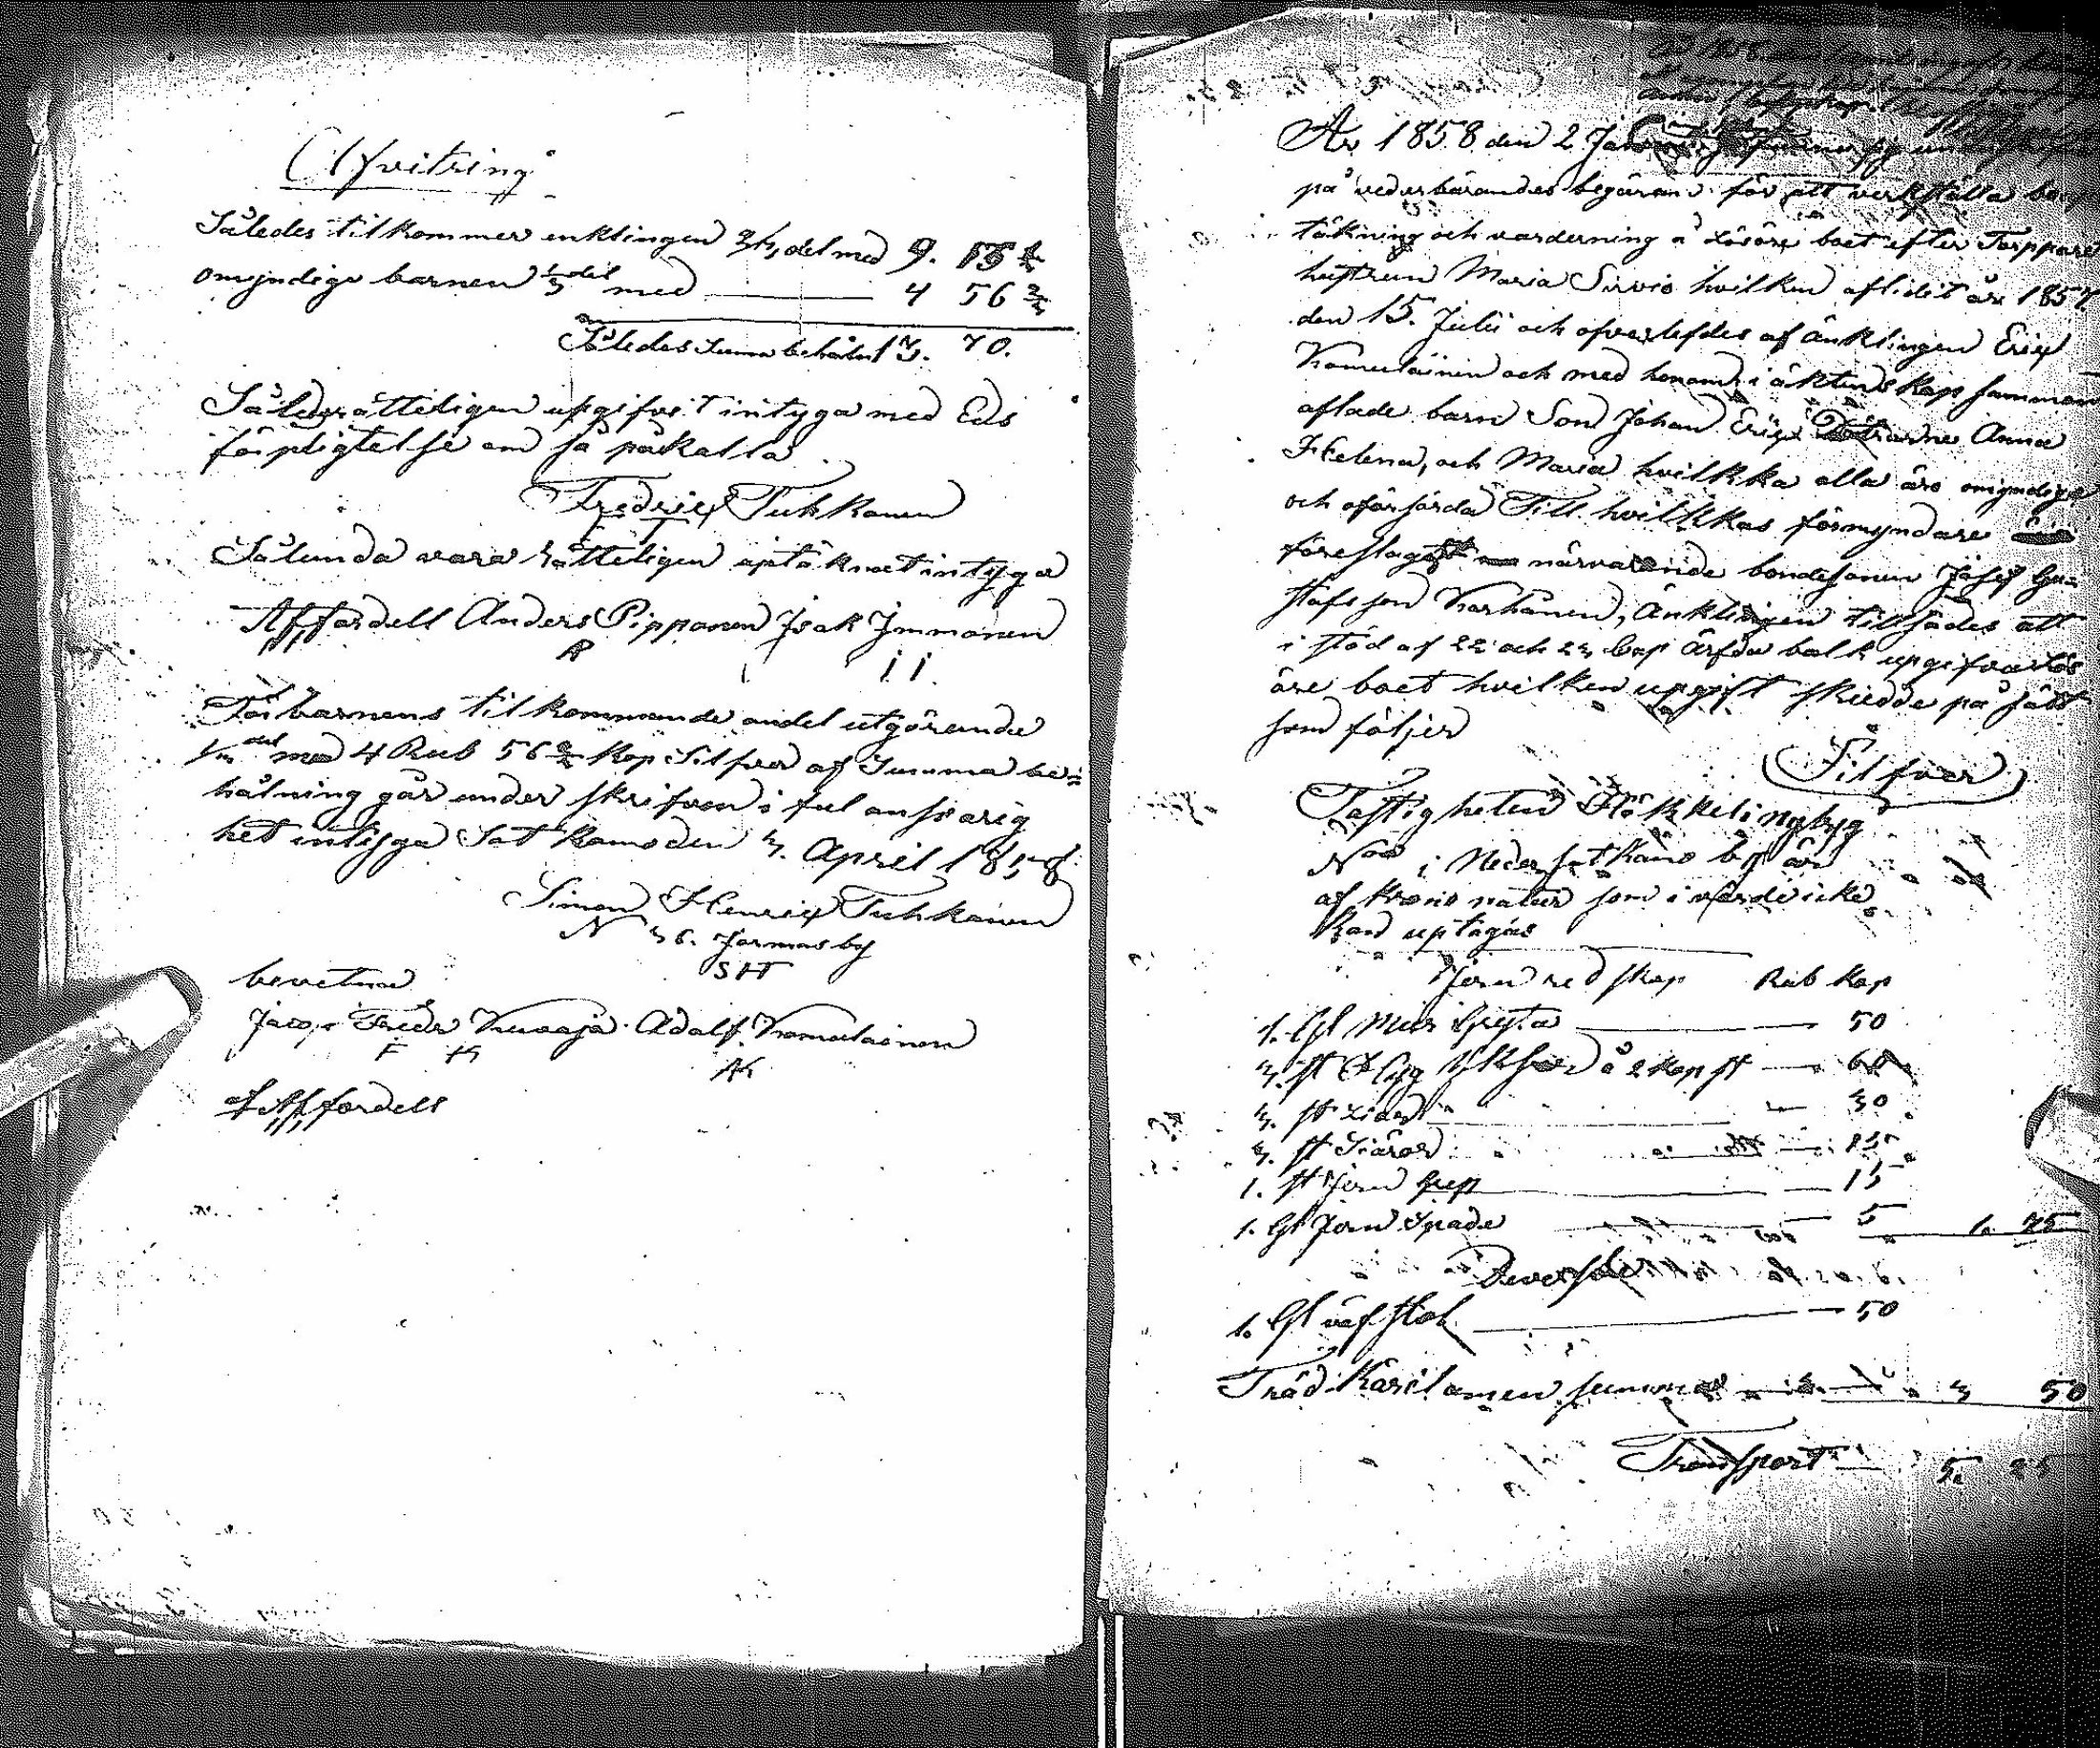 Afvitring
Således tilkommer enklingen 2/3 del med 9. 13 1/3
omyndige barnen 1/3 del med 4 56 2/3
Således Suma behåln 13. 70.
Således rätteligen upgifvit intyga med Eds
förpligtelse om så påkallas
Fredric Tuhkanen
F T
Sålunda vara rätteligen uptäknat intyga
Aff fardell Anders Pipponen Isak Immonen
AP I I
För barnens tilkommande andel utgörande
1/3 del med 4 Rub 56 2/3 Kop Silfver af Summa be=
hålning går under skrifven i ful ansvarig
het intyga Sotkamo den 3. April 1858
Simon Henric Tuhkanen
N 36. Jormas by
S H T
bevetna
Jacop Fredr Kusaja Adalf Komulainen
F K AK
af Aff fardell
År 1858 den 2
på vederbörandes begäran för att verkställa bo
täkning och varderning å Lösöre boet efter Torppare
hustrun Maria Sirvio hvilken aflidit år 1857
den 15. Julii och öfverlefdes af änklingen Eric
Komulainen och med honom i äktenskap samman
aflade barn Son Johan Eric Dötrarne Anna
Helena, och Maria hvilkka alla äro omyndige
och oförsörda Till hvilkkas förmyndare
föreslagit närvarande bondesonen Josef Gu=
stafsson Karhånen, Änklingen tillsades att
i stöd af 22 och 23 Cap Ärfda balk upgifva lös
öre boet hvilken upgift skedde på sätt
som följer
Silfver
Fastigheten Hökkeli nybyg
N i Neder Sotkamo by är
af Krono natur som i värde icke
kand uptagas
Jern redskap Rub Kop
1. st Mur Gryta 50
3. st Hyg Ykser à 2 kop st 60
3. st Liar 30
3. st Skäror 15
1. st Jern Grep 15
1. st Jern Spade 5 1. 75
Deversse
1. st väf stol 50
Träd Käril smen summa 3 50
Transport 5. 25